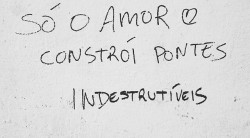 SÓ O AMOR ♡
CONSTRÓI PONTES
INDESTRUTÍVEIS